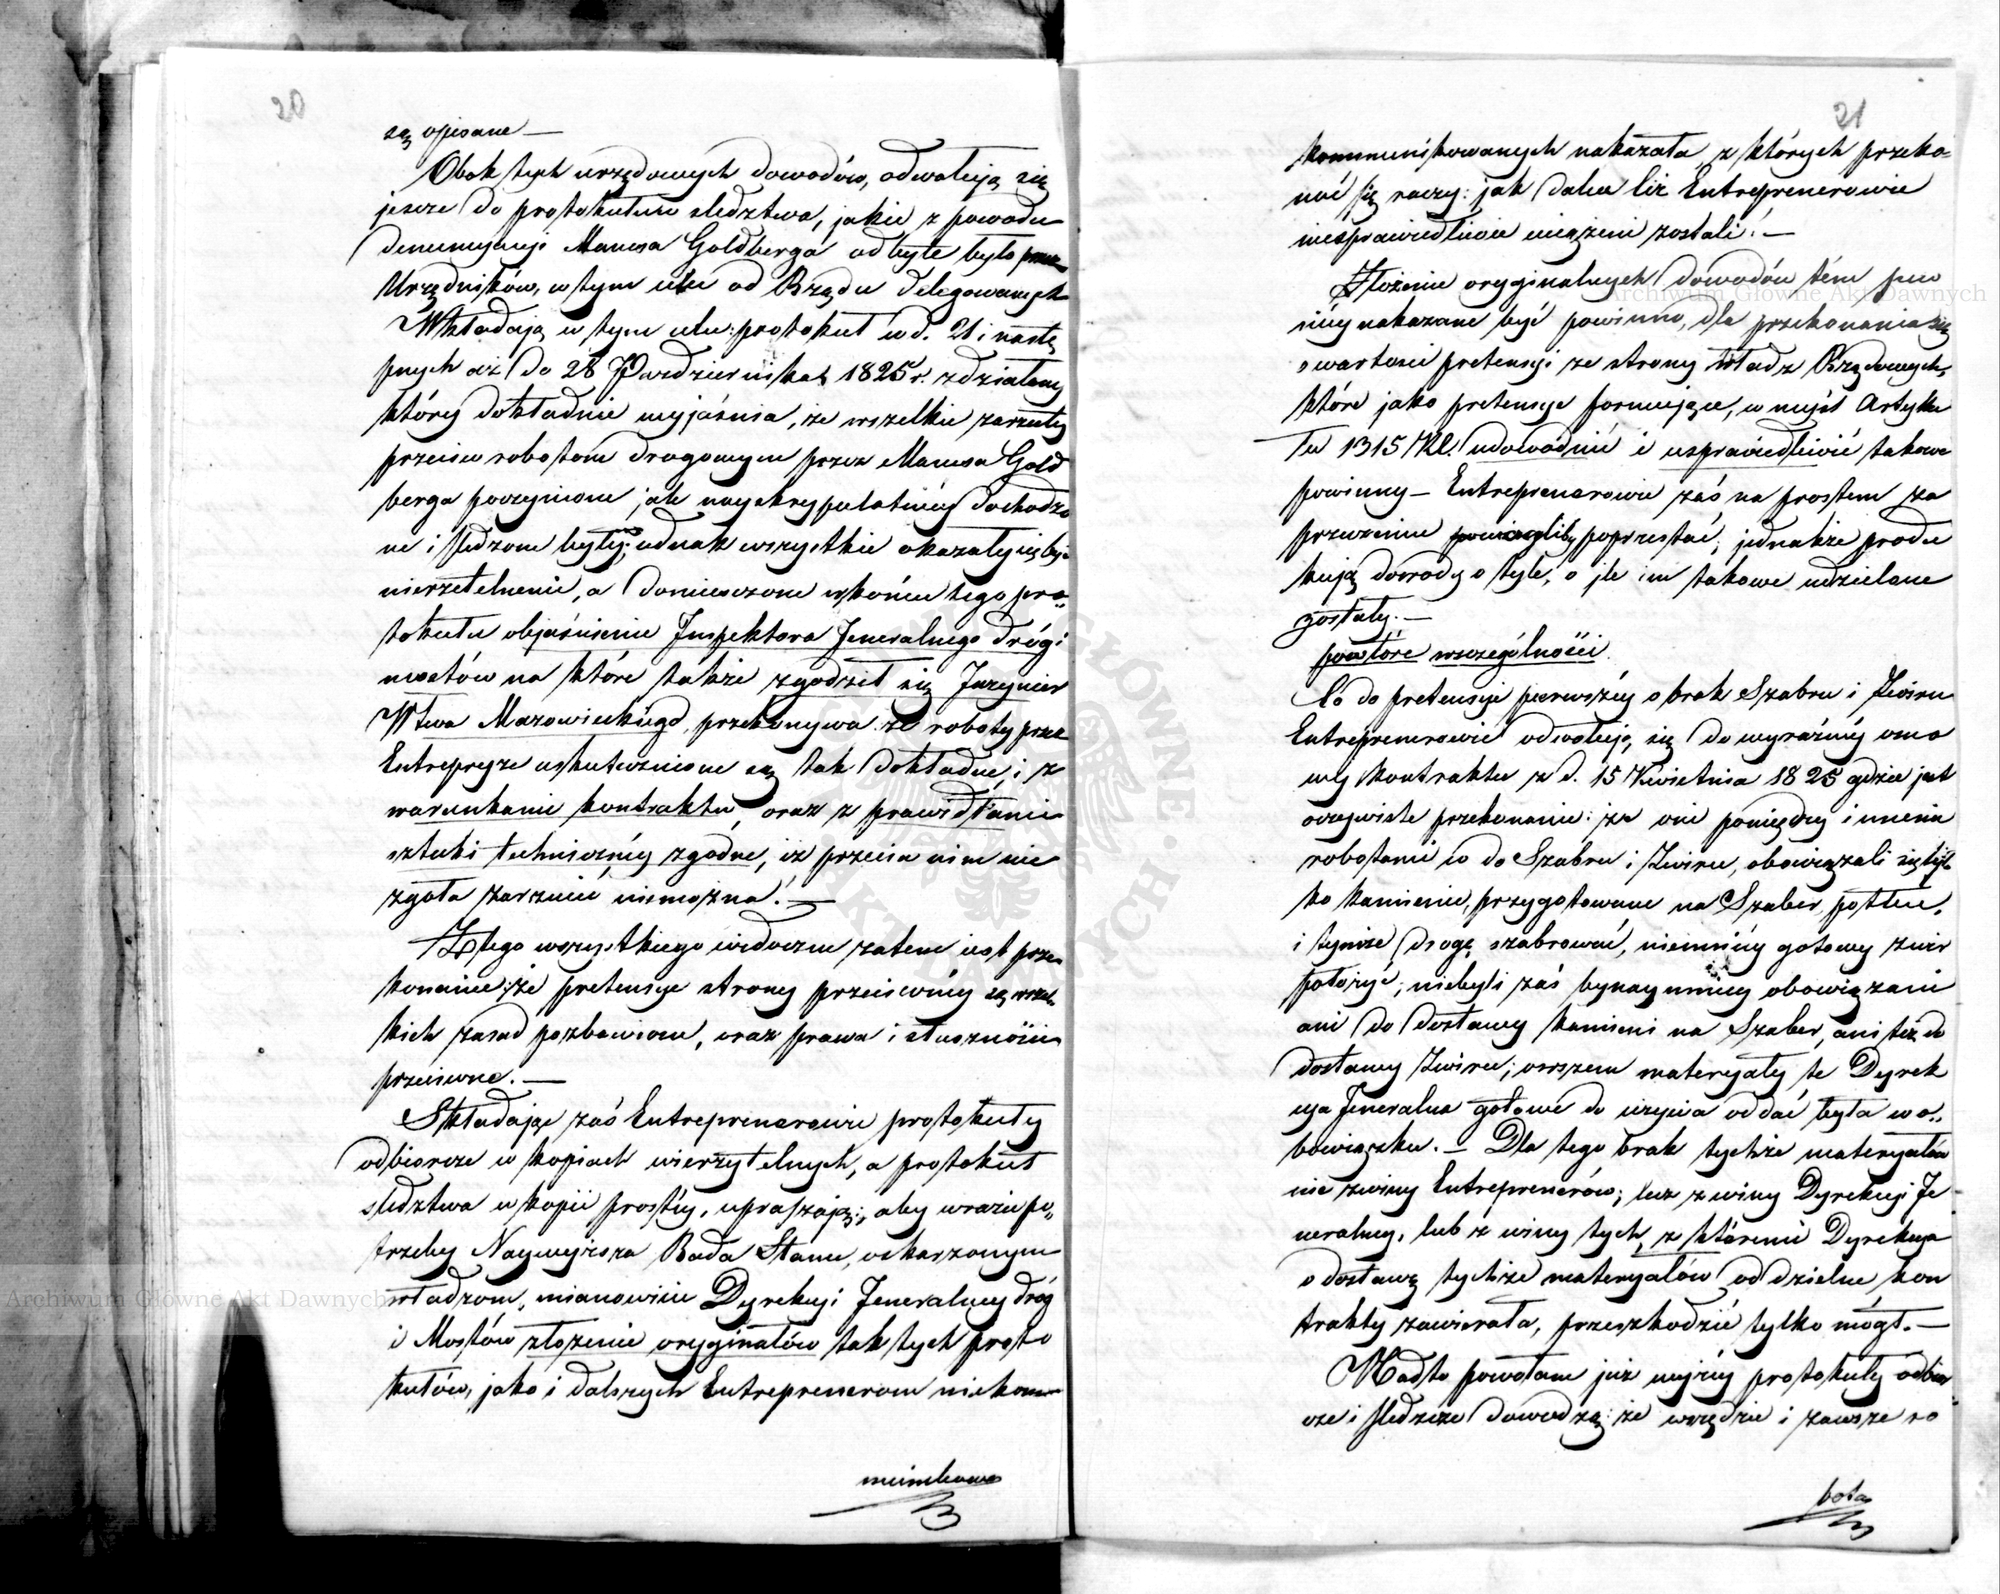 20
są opisane —
Obok tych urzędowych dowodów, odwołują się
jeszcze do protokułum śledztwa, jakie z powodu
denuncyacyi Manesa Goldberga odbyte było przez
Urzędników, w tym celu od Rządu delegowanych
Wkładają w tym celu: protokuł w d. 21 i nastę
pnych aż do 28 Pazdziernika 1825 r. zdziałany
który dokładnie wyjaśnia, że wszelkie zarzuty
przeciw robotom drogowym przez Manesa Gold
berga poczynione, jak nayskrypulatniey dochodzo
ne i śledzone były; jednak wszystkie okazały się być
nierzetelnemi, a domieszczone w końcu tego pro„
tokułu objaśnienie Inspektora Jeneralnego dróg i
mostów na które także zgodził się Inżynier
Wtwa Mazowieckiego, przekonywa że roboty przez
Entrepryze uskutecznione są tak dokładne, i z
warunkami kontraktu, oraz z prawidłami
sztuki techniczney zgodne, iż przeciw nim nic
zgoła zarzucić niemożna! —
Z tego wszystkiego widoczne zatem jest prze
konanie; że pretensye strony przeciwney są wszel
kich zasad pozbawione, oraz prawu i słuszności
przeciwne. —
Składając zaś Entreprenerowie protokuły
odbiorcze w kopiach wierzytelnych, a protokuł
śledztwa w kopii prostey, upraszają; aby w razie po„
trzeby Naywyższa Rada Stanu, oskarzonym
władzom, mianowicie Dyrekcyi Jeneralney dróg
i Mostów złożenie oryginałów tak tych proto
kułów, jako i dalszych Entreprenerom niekom„
munikowa
21
kommunikowanych nakazała, z których przeko„
nać się raczy: jak dalece ciż Entreprenerowie
niesprawiedliwie uciążeni zostali! —
Złożenie oryginalnych dowodów tém pew
niey nakazane być powinno, dla przekonania się
o wartości pretensyi ze strony Władz Rządowych,
które jako pretensye formujące, w myśl Artyku
łu 1315 KC. udowodnić i usprawiedliwić takowe
powinny — Entreprenerowie zaś na prostem za
przeczeniu powinniby poprzestać; jednakże produ
kują dowody o tyle, o ile im takowe udzielone
zostały. —
powtóre wszczególności
Co do pretensyi pierwszéy o brak Szabru i Zwiru
Entreprenerowie odwołują się do wyraźnéy omo
wy kontraktu z d. 15 Kwietnia 1825 gdzie jest
oczywiste przekonanie: że oni pomiędzy innemi
robotami co do Szabru i Zwiru, obowiązali się tyl„
ko kamienie, przygotowane na Szaber potłuc,
i tymże drogę szabrować, niemniey gotowy zwir
położyć; niebyli zaś bynaymniey obowiązani
ani do dostawy kamieni na Szaber, ani też do
dostawy Zwiru; owszem materyały te Dyrek
cya Jeneralna gotowe do użycia oddać była w o„
bowiązku. — Dla tego brak tychże materyałów
nie z winy Entreprenerów; lecz z winy Dyrekcyi Je
neralney, lub z winy tych, z któremi Dyrekcya
o dostawę tychże materyałów oddzielne kon
trakty zawierała, przeszkodzić tylko mógł. —
Nadto powołane już wyżey protokuły odbior
cze i śledcze dowodzą: że wszędzie i zawsze ro
bota